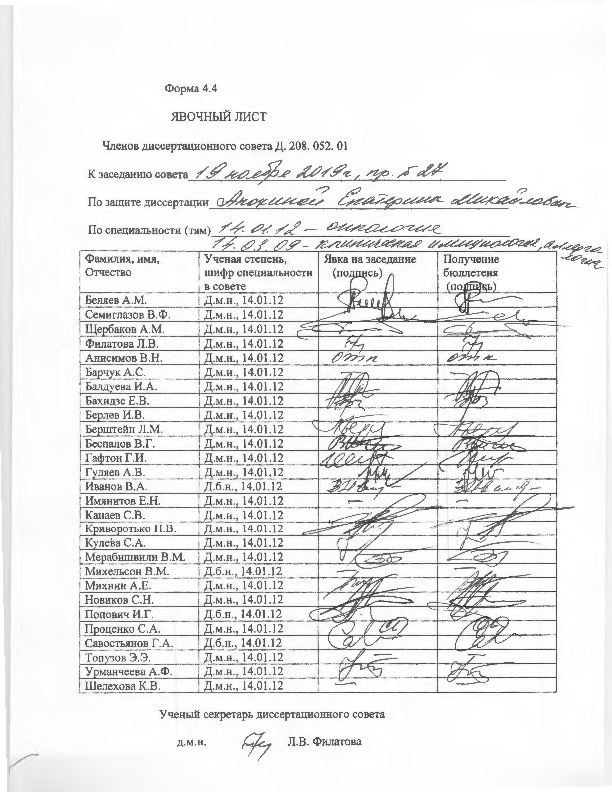 Форма 4.4
ЯВОЧНЫЙ ЛИСТ
Членов диссертационного совета Д. 208. 052. 01
К заседанию совета 19 ноября 2019г, пр. № 27
По защите диссертации Екатерины Михайловны
По специальности (тям) 14.01.12 – онкология
14.03.09 - клиническая иммунология, аллергология
Фамилия, имя, Отчество Ученая степень, шифр специальности в совете Явка на заседание (подпись) Получение бюллетеня (подпись)
Беляев А.М. Д.м.н., 14.01.12
Семиглазов В.Ф. Д.м.н., 14.01.12
Щербаков А.М. Д.м.н., 14.01.12
Филатова Л.В. Д.м.н., 14.01.12
Анисимов В.Н. Д.м.н., 14.01.12
Барчук А.С. Д.м.н., 14.01.12
Балдуева И.А. Д.м.н., 14.01.12
Бахидзе Е.В. Д.м.н., 14.01.12
Берлев И.В. Д.м.н., 14.01.12
Берштейн Л.М. Д.м.н., 14.01.12
Беспалов В.Г. Д.м.н., 14.01.12
Гафтон Г.И. Д.м.н., 14.01.12
Гуляев А.В. Д.м.н., 14.01.12
Иванов В.А. Д.б.н., 14.01.12
Имянитов Е.Н. Д.м.н., 14.01.12
Канаев С.В. Д.м.н., 14.01.12
Криворотько П.В. Д.м.н., 14.01.12
Кулева С.А. Д.м.н., 14.01.12
Мерабишвили В.М. Д.м.н., 14.01.12
Михельсон В.М. Д.б.н., 14.01.12
Михнин А.Е. Д.м.н., 14.01.12
Новиков С.Н. Д.м.н., 14.01.12
Попович И.Г. Д.б.н., 14.01.12
Проценко С.А. Д.м.н., 14.01.12
Савостьянов Г.А. Д.б.н., 14.01.12
Топузов Э.Э. Д.м.н., 14.01.12
Урманчеева А.Ф. Д.м.н., 14.01.12
Шелехова К.В. Д.м.н., 14.01.12
Ученый секретарь диссертационного совета
д.м.н. Л.В. Филатова